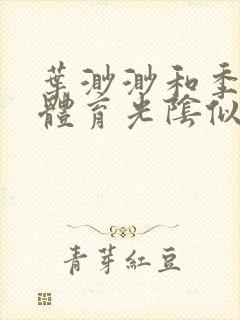 葉渺渺和季
體育光陰似
青芽紅豆